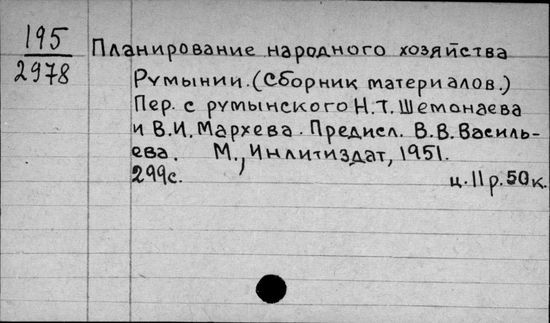 195
2978
Планирование народного хозяйства
Румынии. (Сборник материалов.)
Пер. с румынского Н.Т. Шемонаева
и В.И. Мархева. Предисл. В.В. Василь-
ева. М., Инлитиздат, 1951.
299с. ц. 11 р. 50 к.